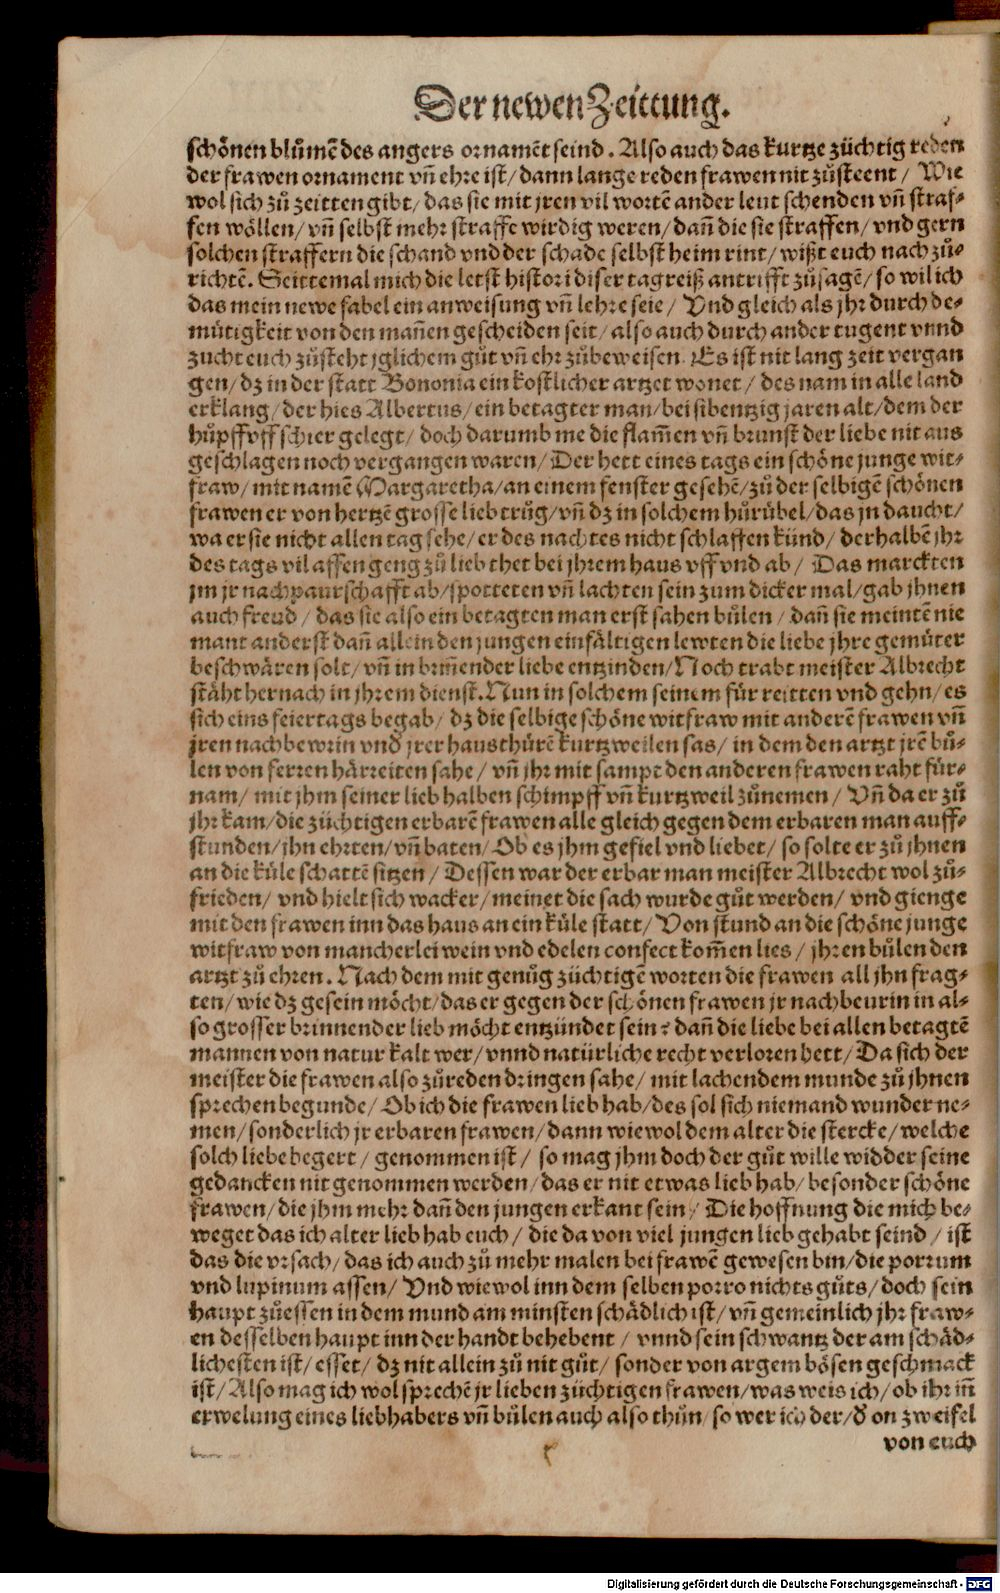 Der newen Zeittung.
schönen blůmē des angers ornamēt seind. Also auch das kurtze züchtig reden
der frawen ornament vñ ehre ist/ dann lange reden frawen nit zůsteent/ Wie
wol sich zů zeitten gibt/ das sie mit jren vil wortē ander leut schenden vñ straf-
fen wöllen/ vñ selbst mehr straffe wirdig weren/ dañ die sie straffen/ vnd gern
solchen straffern die schand vnd der schade selbst heim rint/ wißt euch nach zů-
richtē. Seittemal mich die letst histori diser tagreiß antrifft zůsagē/ so wil ich
das mein newe fabel ein anweisung vñ lehre seie/ Vnd gleich als jhr durch de-
mütigkeit von den mañen gescheiden seit/ also auch durch ander tugent vnnd
zucht euch zůsteht jglichem gůt vñ ehr zůbeweisen. Es ist nit lang zeit vergan
gen/ dz in der statt Bononia ein kostlicher artzet wonet/ des nam in alle land
erklang/ der hies Albertus/ ein betagter man/ bei sibentzig jaren alt/ dem der
hůpff vff schier gelegt/ doch darumb me die flam̄en vñ brunst der liebe nit aus
geschlagen noch vergangen waren/ Der hett eines tags ein schöne junge wit-
fraw/ mit namē Margaretha/ an einem fenster gesehē/ zů der selbigē schönen
frawen er von hertzē grosse lieb trůg/ vñ dz in solchem hůrübel/ das jn daucht/
wa er sie nicht allen tag sehe/ er des nachtes nicht schlaffen künd/ derhalbē jhr
des tags vil affen geng zů lieb thet bei jhrem haus vff vnd ab/ Das marckten
jm jr nachpaurschafft ab/ spotteten vñ lachten sein zum dicker mal/ gab jhnen
auch freud/ das sie also ein betagten man erst sahen bůlen/ dañ sie meintē nie
mant anderst dañ allein den jungen einfältigen lewten die liebe jhre gemüter
beschwären solt/ vñ in brin̄ender liebe entzinden/ Noch trabt meister Albrecht
stäht hernach in jhrem dienst. Nun in solchem seinem für reitten vnd gehn/ es
sich eins feiertags begab/ dz die selbige schöne witfraw mit anderē frawen vñ
jren nachbewrin vnd jrer hausthürē kurtzweilen sas/ in dem den artzt jrē bů-
len von ferren härreiten sahe/ vñ jhr mit sampt den anderen frawen raht für-
nam/ mit jhm seiner lieb halben schimpff vñ kurtzweil zůnemen/ Vñ da er zů
jhr kam/ die züchtigen erbarē frawen alle gleich gegen dem erbaren man auff-
stunden/ jhn ehrten/ vñ baten/ Ob es jhm gefiel vnd liebet/ so solte er zů jhnen
an die küle schattē sitzen/ Dessen war der erbar man meister Albrecht wol zů-
frieden/ vnd hielt sich wacker/ meinet die sach wurde gůt werden/ vnd gienge
mit den frawen inn das haus an ein küle statt/ Von stund an die schöne junge
witfraw von mancherlei wein vnd edelen confect kom̄en lies/ jhren bůlen den
artzt zů ehren. Nach dem mit genůg züchtigē worten die frawen all jhn frag-
ten/ wie dz gesein möcht/ das er gegen der schönen frawen jr nachbeurin in al-
so grosser brinnender lieb möcht entzündet sein? dañ die liebe bei allen betagtē
mannen von natur kalt wer/ vnnd natürliche recht verloren hett/ Da sich der
meister die frawen also zůreden dringen sahe/ mit lachendem munde zů jhnen
sprechen begunde/ Ob ich die frawen lieb hab/ des sol sich niemand wunder ne-
men/ sonderlich jr erbaren frawen/ dann wiewol dem alter die stercke/ welche
solch liebe begert/ genommen ist/ so mag jhm doch der gůt wille widder seine
gedancken nit genommen werden/ das er nit etwas lieb hab/ besonder schöne
frawen/ die jhm mehr dañ den jungen erkant sein/ Die hoffnung die mich be-
weget das ich alter lieb hab euch/ die da von viel jungen lieb gehabt seind/ ist
das die vrsach/ das ich auch zů mehr malen bei frawē gewesen bin/ die porrum
vnd lupinum assen/ Vnd wiewol inn dem selben porro nichts gůts/ doch sein
haupt zůessen in dem mund am minsten schädlich ist/ vñ gemeinlich jhr fraw-
en desselben haupt inn der handt behebent/ vnnd sein schwantz der am schäd-
lichesten ist/ esset/ dz nit allein zů nit gůt/ sonder von argem bösen geschmack
ist/ Also mag ich wol sprechē jr lieben züchtigen frawen/ was weis ich/ ob ihr iñ
erwelung eines liebhabers vñ bůlen auch also thůn/ so wer ich der/ d on zweifel
von euch
Digitalisierung gefördert durch die Deutsche Forschungsgemeinschaft - DFG